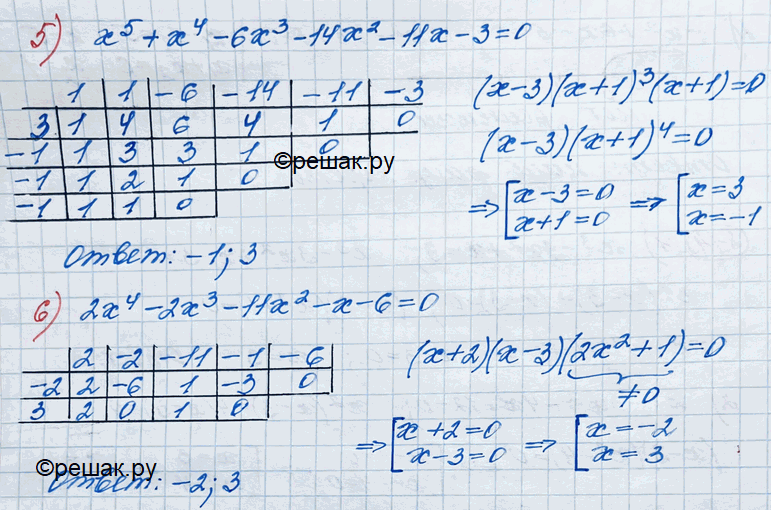 5) x⁵ + x⁴ - 6x³ - 14x² - 11x - 3 = 0
1 1 -6 -14 -11 -3
3 1 4 6 4 1 0
-1 1 3 3 1 0
-1 1 2 1 0
-1 1 1 0
©решак.ру
(x-3)(x+1)³(x+1)=0
(x-3)(x+1)⁴=0
⇒ [x-3=0 ⇒ [x=3
x+1=0 x=-1
Ответ: -1; 3
6) 2x⁴ - 2x³ - 11x² - x - 6 = 0
2 -2 -11 -1 -6
-2 2 -6 1 -3 0
3 2 0 1 0
(x+2)(x-3)(2x²+1)=0
≠0
⇒ [x+2=0 ⇒ [x=-2
x-3=0 x=3
©решак.ру
Ответ: -2; 3